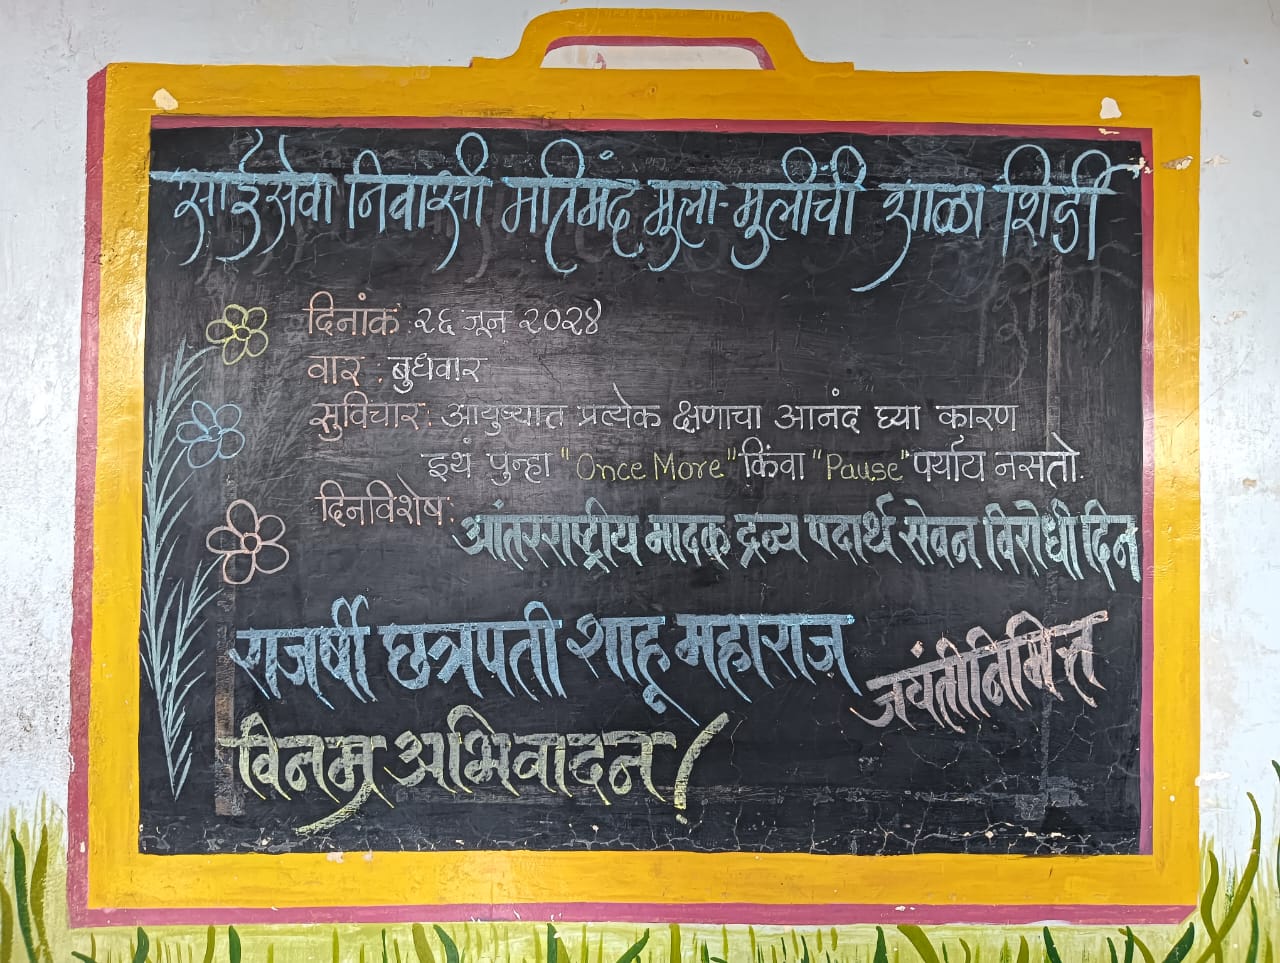 साई सेवा निवासी मतिमंद मुला-मुलींची शाळा शिर्डी
दिनांक : २६ जून २०२४
वार : बुधवार
सुविचार : आयुष्यात प्रत्येक क्षणाचा आनंद घ्या कारण
इथं पुन्हा "Once More" किंवा "Pause" पर्याय नसतो.
दिनविशेष :
आंतरराष्ट्रीय मादक द्रव्य पदार्थ सेवन विरोधी दिन
राजर्षी छत्रपती शाहू महाराज जयंतीनिमित्त
विनम्र अभिवादन !